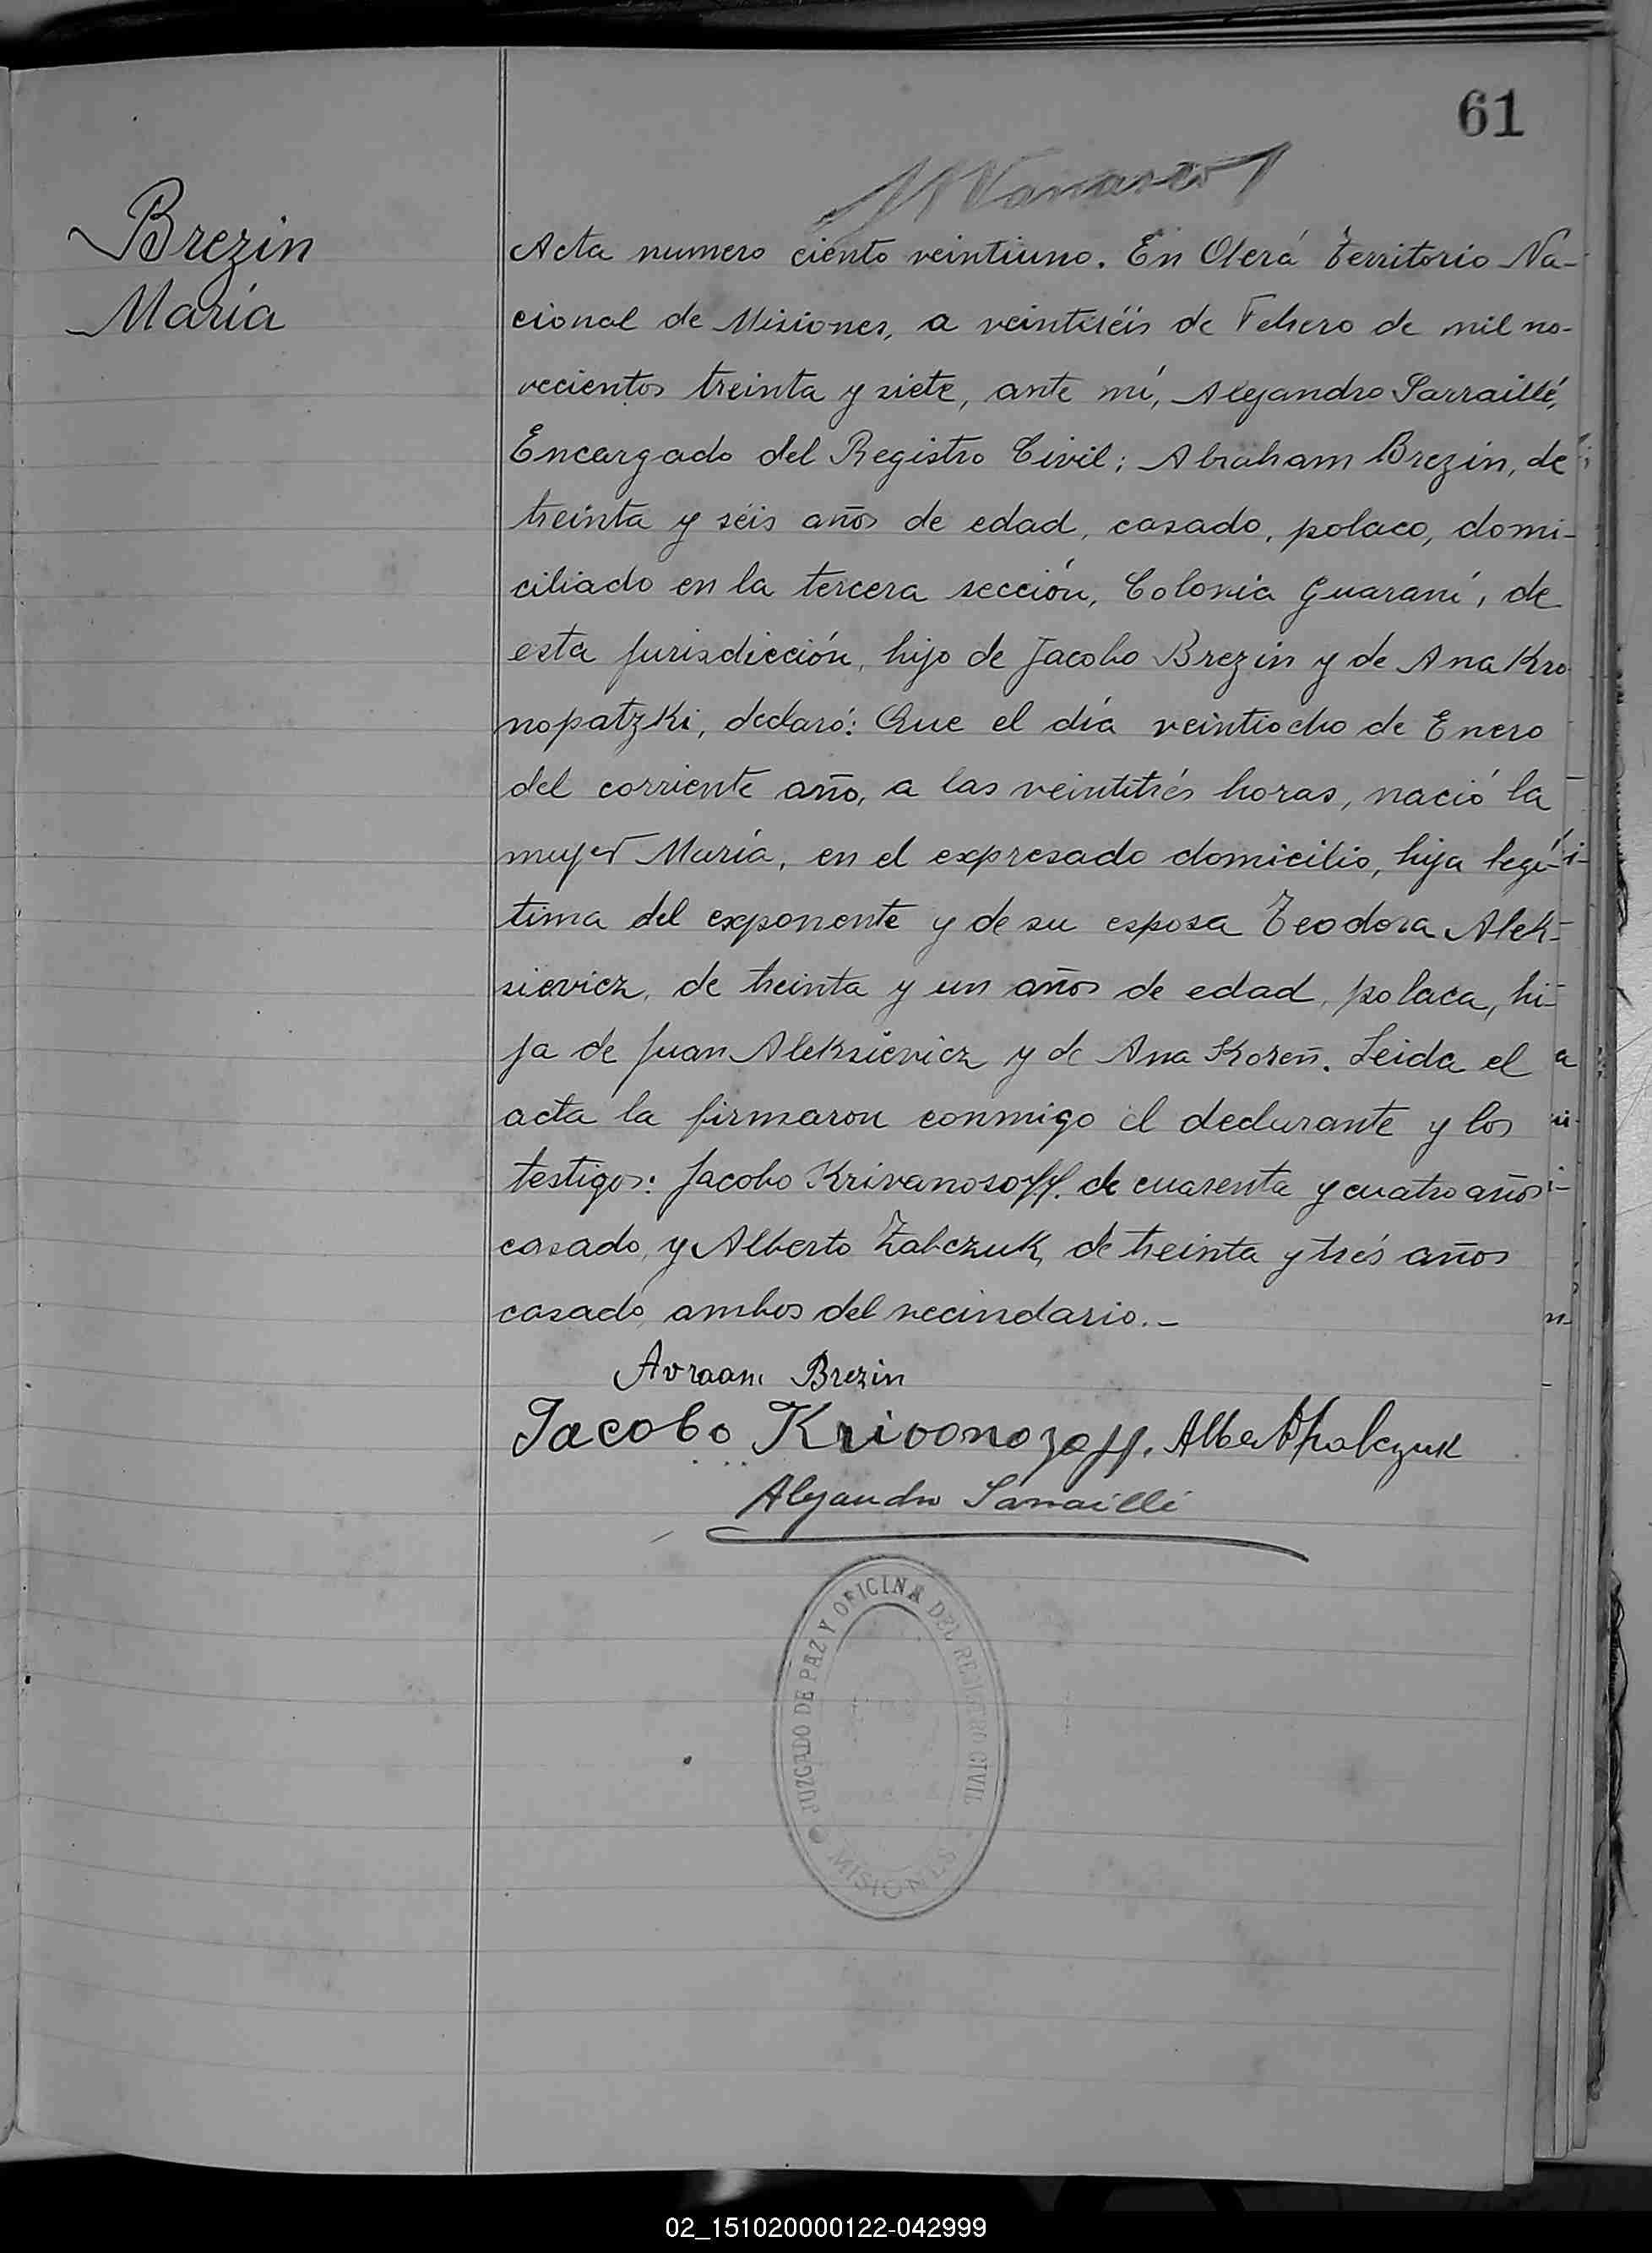 61
Brezin
María
Acta numero ciento veintiuno. En Oberá Territorio Na-
cional de Misiones, a veintiséis de Febrero de mil no-
vecientos treinta y siete, ante mí, Alejandro Sarraillé,
Encargado del Registro Civil; Abraham Brezin, de
treinta y séis años de edad, casado, polaco, domi-
ciliado en la tercera sección, Colonia Guaraní, de
esta jurisdicción, hijo de Jacobo Brezin y de Ana Kro
nopatzki, declaró: Que el día veintiocho de Enero
del corriente año, a las veintitrés horas, nació la
mujer María, en el expresado domicilio, hija legí-
tima del exponente y de su esposa Teodora Alek-
sievicz, de treinta y un años de edad, polaca, hi-
ja de Juan Aleksievicz y de Ana Koreñ. Leida el
acta la firmaron conmigo el declarante y los
testigos: Jacobo Krivanosoff. de cuarenta y cuatro años
casado, y Alberto Zabczuk, de treinta y trés años
casado, ambos del vecindario.-
Avraam Brezin
Jacobo Krivonozoff.
Alejandro Sarraillé
JUZGADO DE PAZ Y OFICINA DEL REGISTRO CIVIL
MISIONES
02_151020000122-042999